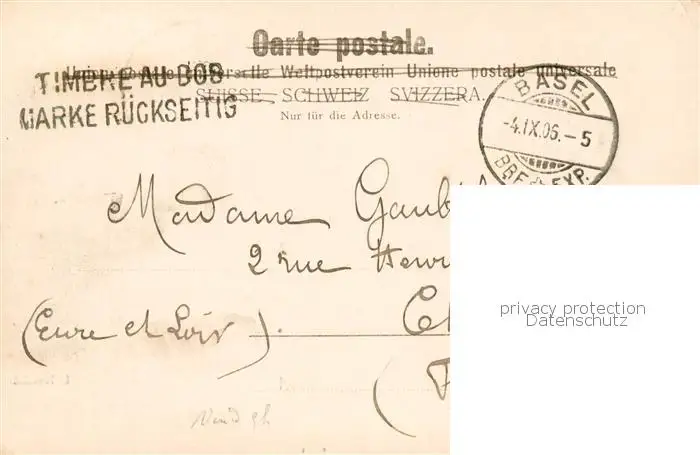 Carte postale.
Weltpostverein Unione postale universale
TIMBRE AU DOS
MARKE RÜCKSEITIG
SUISSE. SCHWEIZ SVIZZERA.
Nur für die Adresse.
BASEL
-4.IX.06.-5
BRF. EXP.
Madame Gaub
2 rue Henri
(Eure et Loir).
privacy protection
Datenschutz